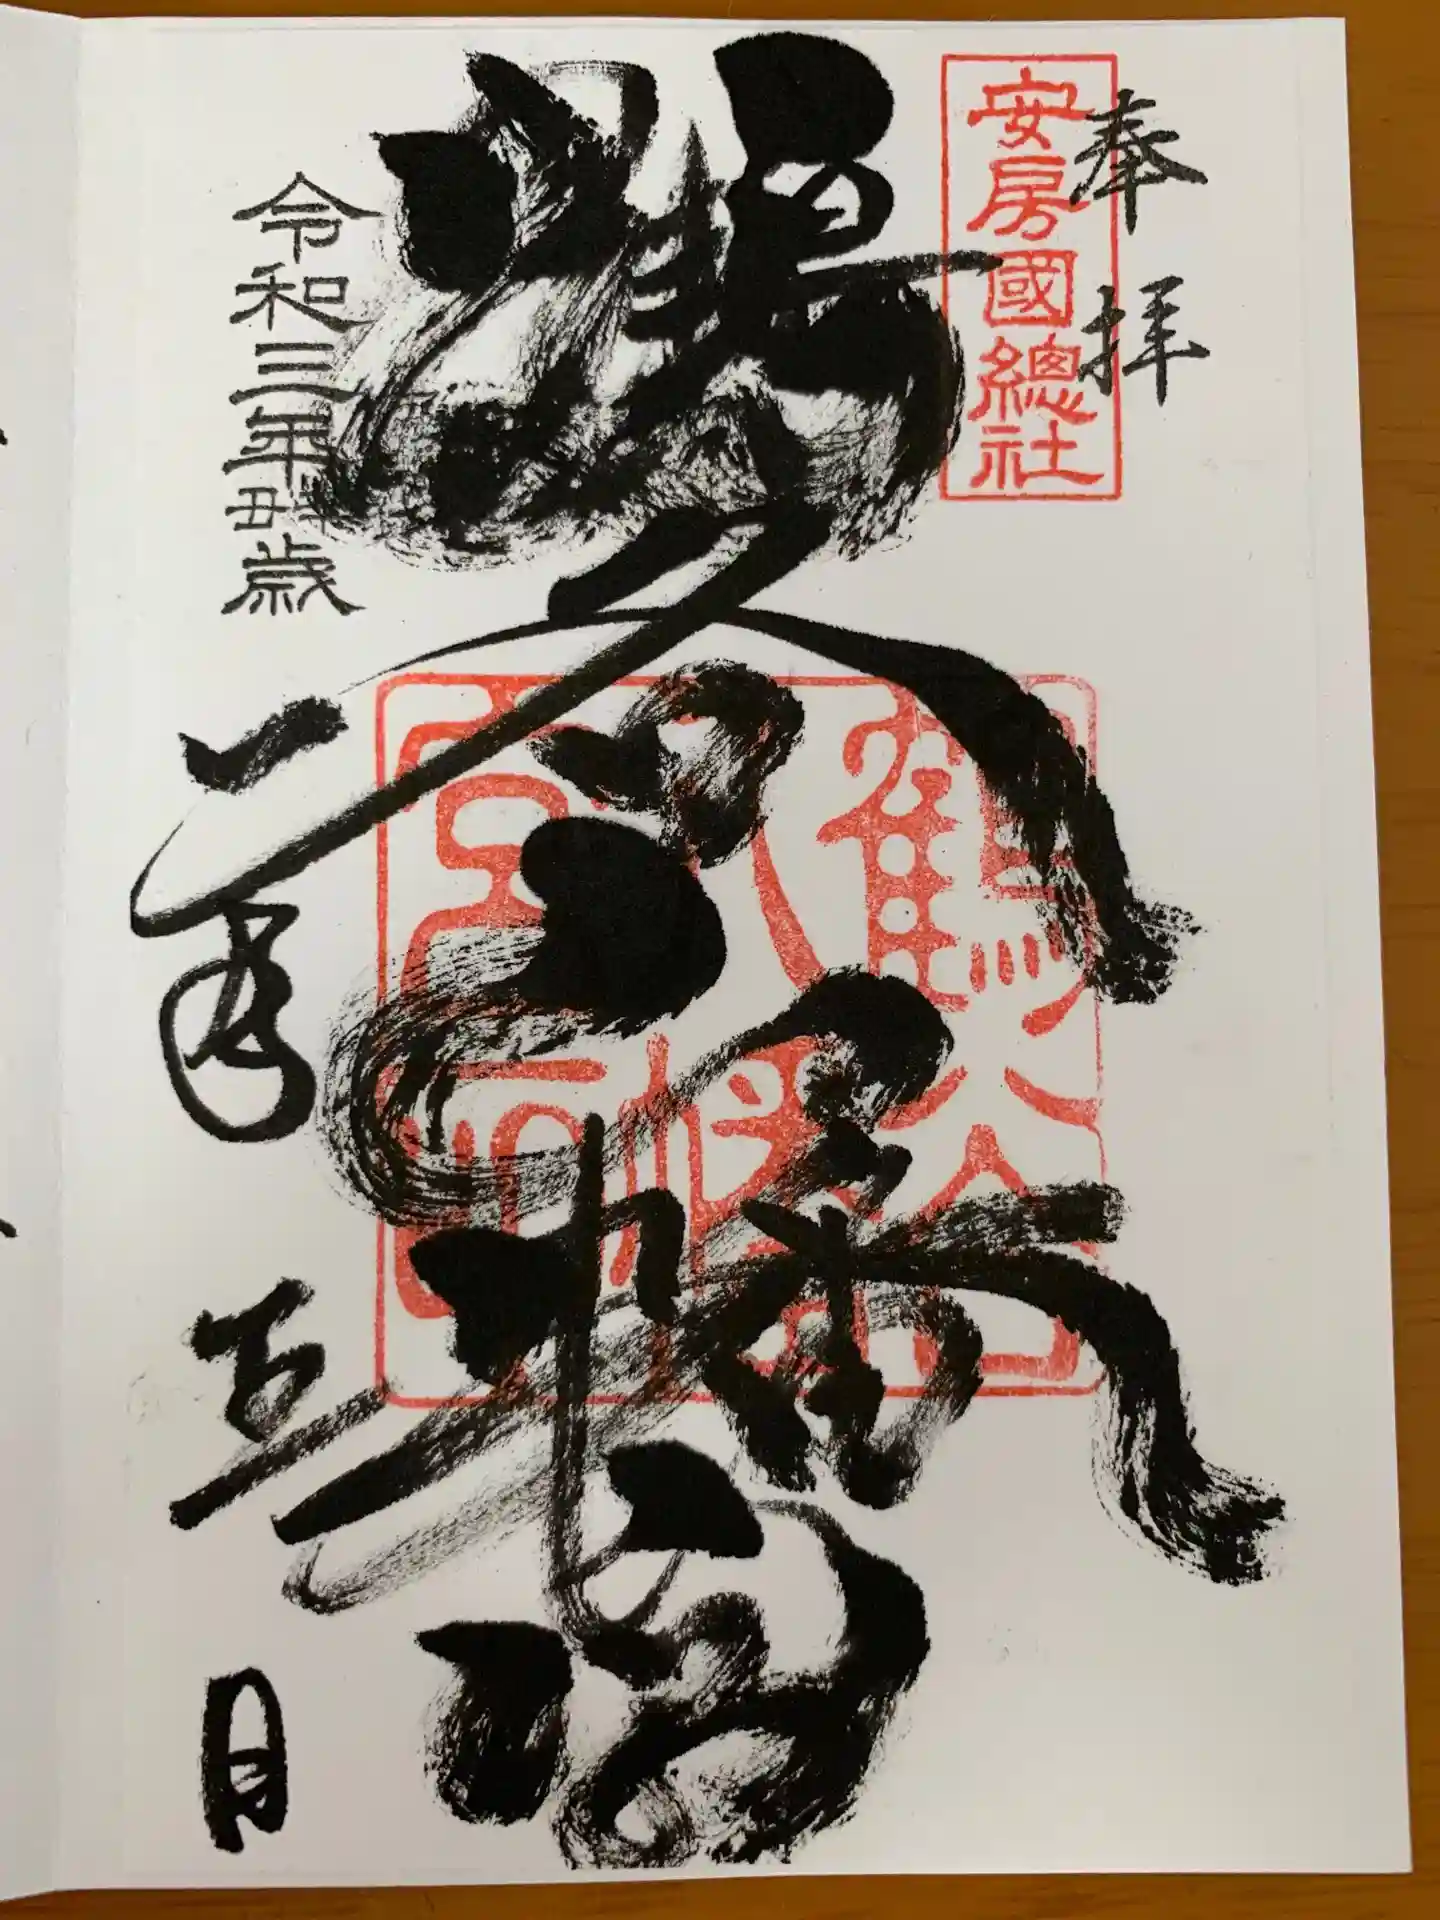 奉拝
安房國總社
鶴谷八幡宮
鶴谷八幡宮印
令和三年辛丑歳
月
日